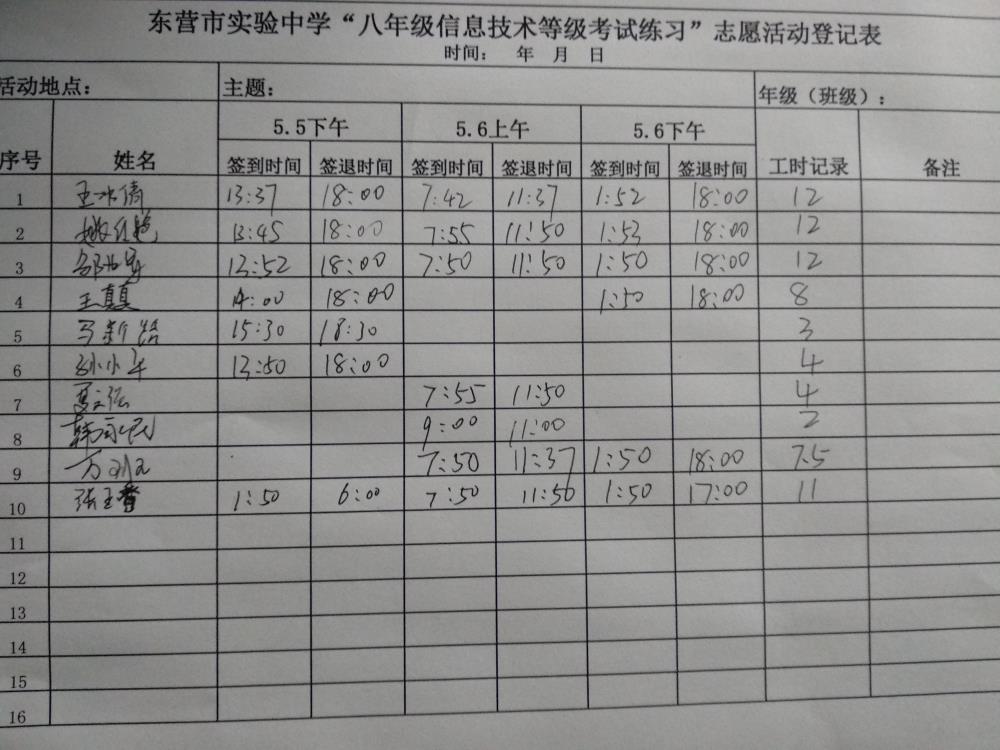 东营市实验中学“八年级信息技术等级考试练习”志愿活动登记表
时间： 年 月 日
活动地点： 主题： 年级（班级）：
5.5下午 5.6上午 5.6下午
序号 姓名 签到时间 签退时间 签到时间 签退时间 签到时间 签退时间 工时记录 备注
1 王冰倩 13:37 18:00 7:42 11:37 1:52 18:00 12
2 13:45 18:00 7:55 11:50 1:53 18:00 12
3 13:52 18:00 7:50 11:50 1:50 18:00 12
4 王真真 14:00 18:00 1:50 18:00 8
5 15:30 18:30 3
6 孙小平 13:50 18:00 4
7 夏文弘 7:55 11:50 4
8 9:00 11:00 2
9 7:50 11:37 1:50 18:00 7.5
10 1:50 6:00 7:50 11:50 1:50 17:00 11
11
12
13
14
15
16